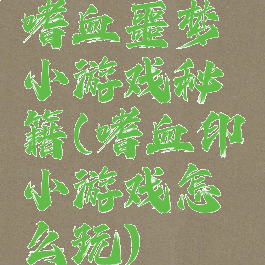 嗜血噩梦
小游戏秘
籍(嗜血印
小游戏怎
么玩)